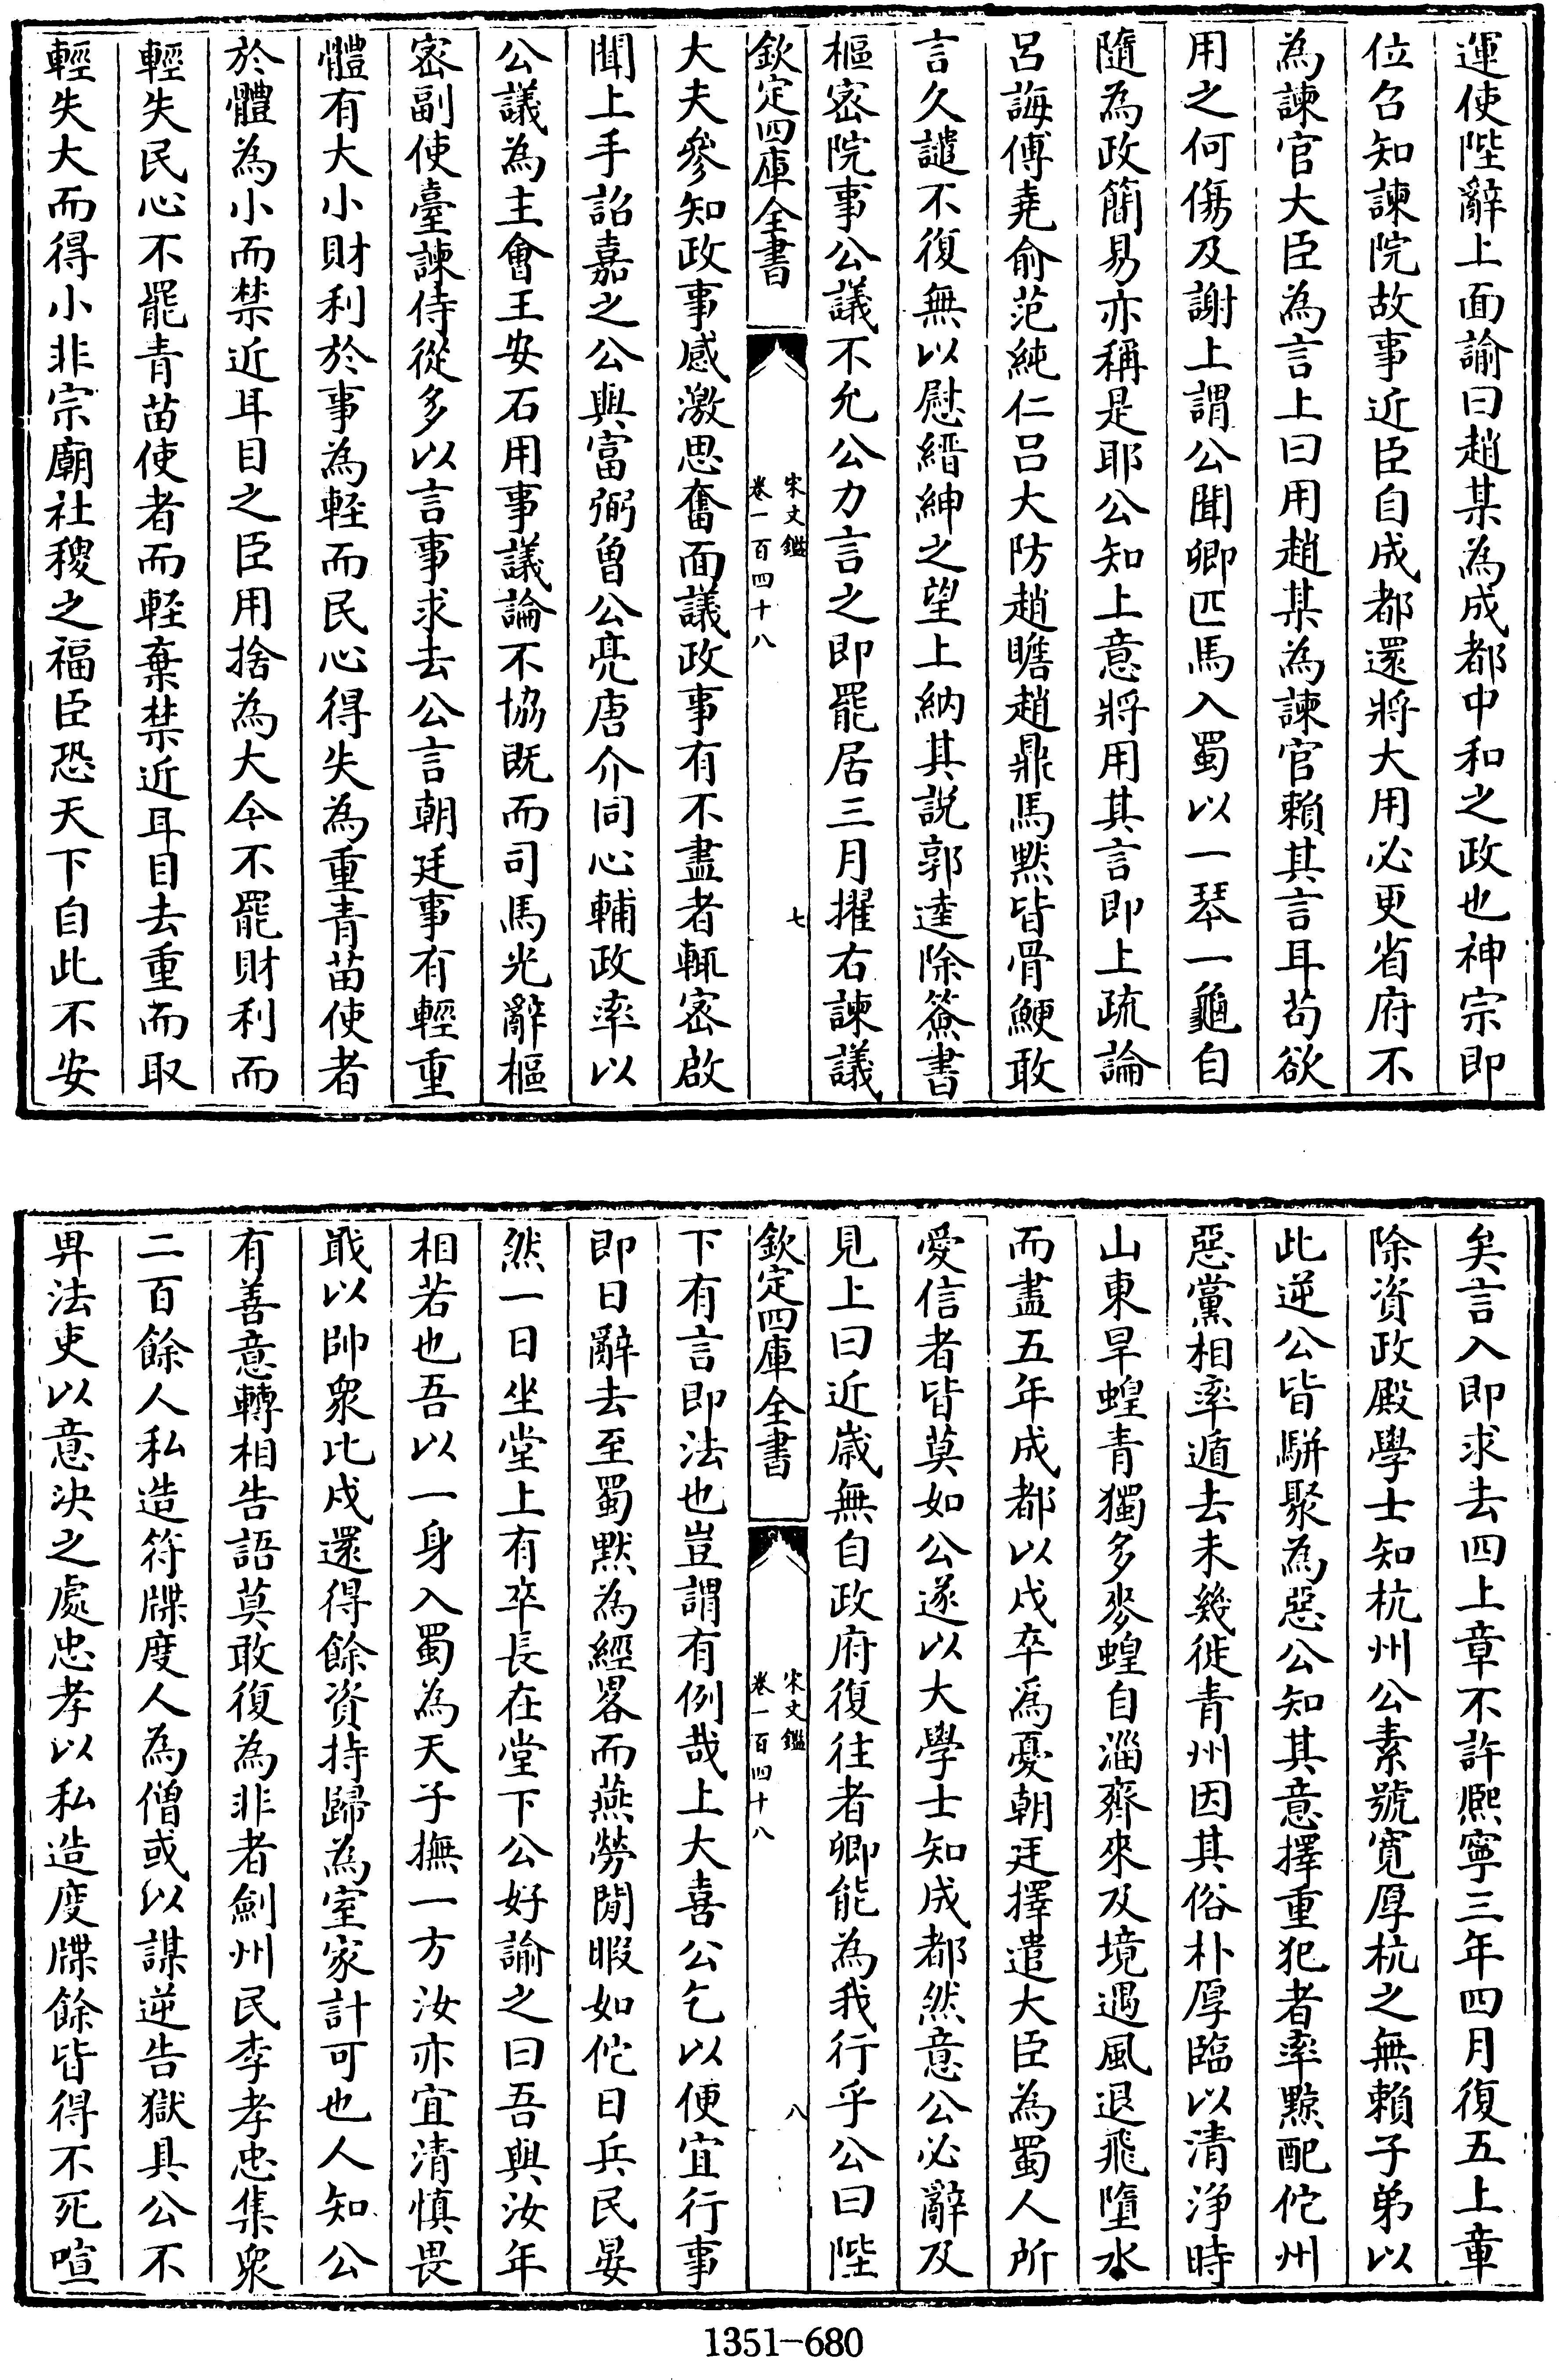 運使陛辭上面諭曰趙某為成都中和之政也神宗即
位召知諫院故事近臣自成都還將大用必更省府不
為諫官大臣為言上曰用趙某為諫官賴其言耳苟欲
用之何傷及謝上謂公聞卿匹馬入蜀以一琴一龜自
隨為政簡易亦稱是耶公知上意將用其言即上疏論
呂誨傅堯俞范純仁呂大防趙瞻趙鼎馬黙皆骨鯁敢
言久譴不復無以慰縉紳之望上納其説郭逵除簽書
樞密院事公議不允公力言之即罷居三月擢右諫議
欽定四庫全書
宋文鑑
卷一百四十八
七
大夫參知政事感激思奮面議政事有不盡者輒密啟
聞上手詔嘉之公與富弼曾公亮唐介同心輔政率以
公議為主會王安石用事議論不協既而司馬光辭樞
密副使臺諫侍從多以言事求去公言朝廷事有輕重
體有大小財利於事為輕而民心得失為重青苗使者
於體為小而禁近耳目之臣用捨為大今不罷財利而
輕失民心不罷青苗使者而輕棄禁近耳目去重而取
輕失大而得小非宗廟社稷之福臣恐天下自此不安
矣言入即求去四上章不許熈寧三年四月復五上章
除資政殿學士知杭州公素號寛厚杭之無賴子弟以
此逆公皆駢聚為惡公知其意擇重犯者率黥配佗州
惡黨相率遁去未幾徙青州因其俗朴厚臨以清浄時
山東旱蝗青獨多麥蝗自淄齊來及境遇風退飛墮水
而盡五年成都以戍卒爲憂朝廷擇遣大臣為蜀人所
愛信者皆莫如公遂以大學士知成都然意公必辭及
見上曰近歳無自政府復往者卿能為我行乎公曰陛
欽定四庫全書
宋文鑑
卷一百四十八
八
下有言即法也豈謂有例哉上大喜公乞以便宜行事
即日辭去至蜀黙為經畧而燕勞閒暇如佗日兵民晏
然一日坐堂上有卒長在堂下公好諭之曰吾與汝年
相若也吾以一身入蜀為天子撫一方汝亦宜清慎畏
戢以帥衆比戍還得餘資持歸為室家計可也人知公
有善意轉相告語莫敢復為非者劍州民李孝忠集衆
二百餘人私造符牒度人為僧或以謀逆告獄具公不
畀法吏以意決之處忠孝以私造度牒餘皆得不死喧
1351-680